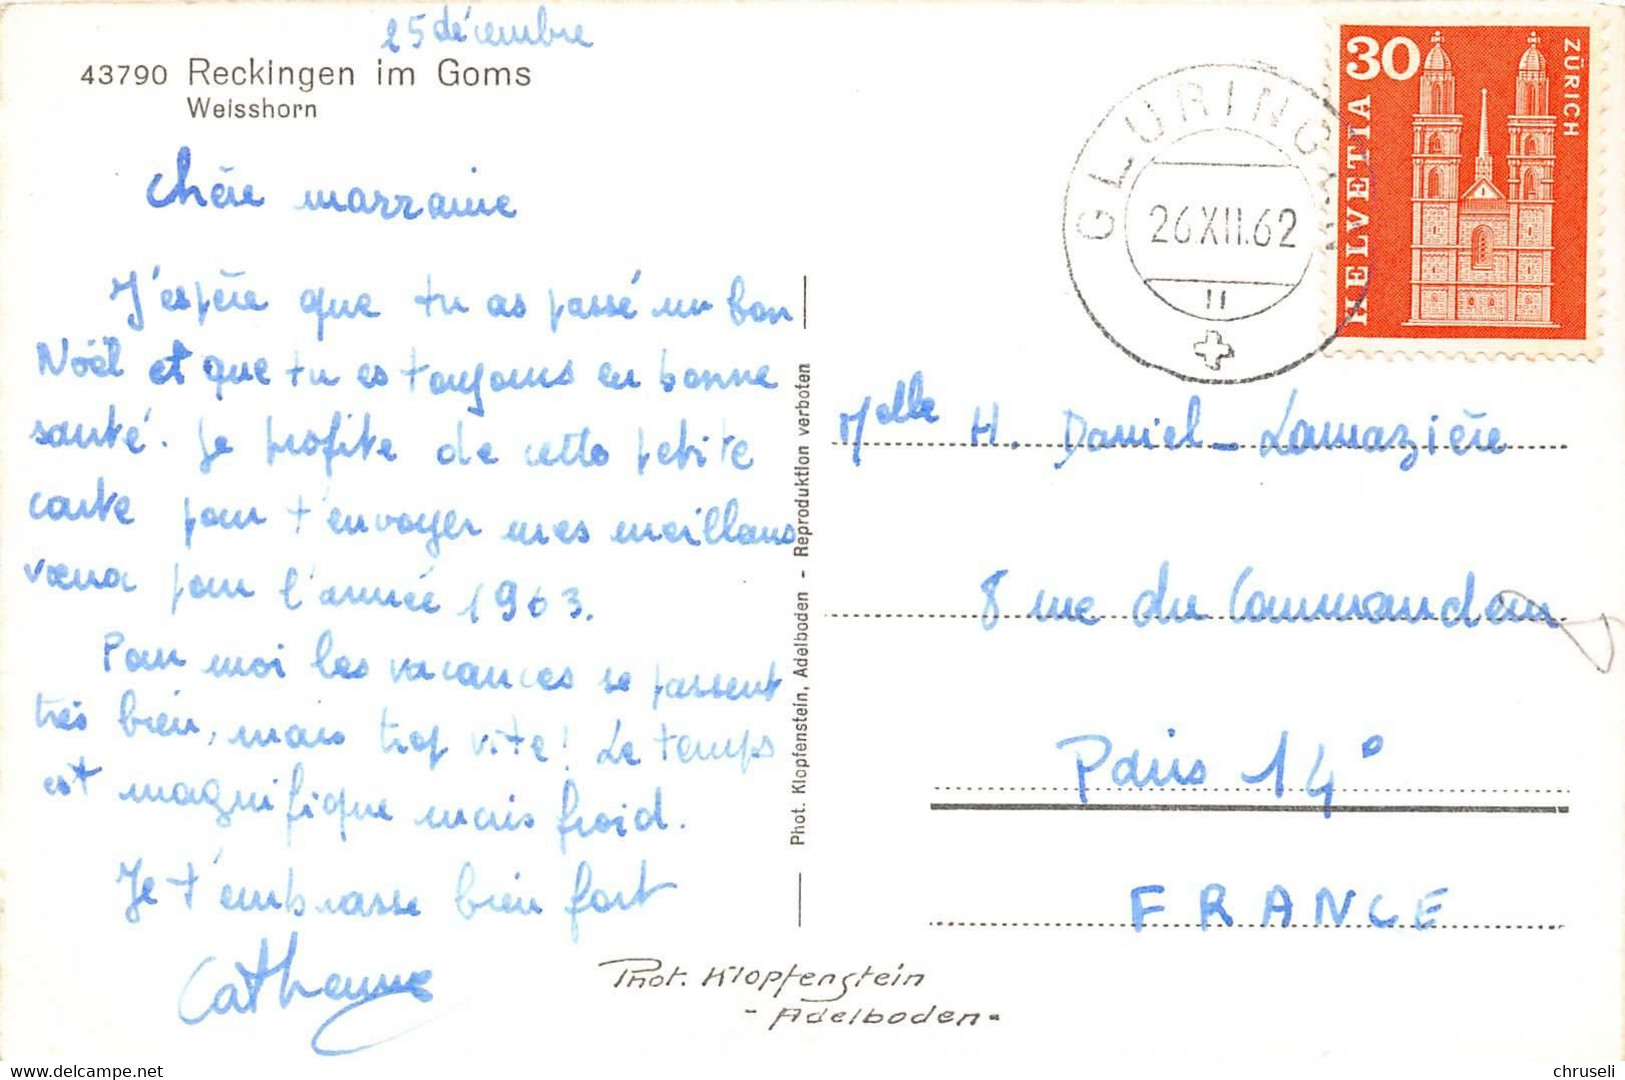 25 décembre
43790 Reckingen im Goms
Weisshorn
Chère marraine
J'espère que tu as passé un bon
Noël et que tu es toujours en bonne
santé. Je profite de cette petite
carte pour t'envoyer mes meilleurs
vœux pour l'année 1963.
Pour moi les vacances se passent
très bien, mais trop vite! Le temps
est magnifique mais froid.
Je t'embrasse bien fort
Catherine
Phot. Klopfenstein, Adelboden - Reproduktion verboten
Phot. Klopfenstein
- Adelboden -
GLURINGEN
26.XII.62
11
30
HELVETIA
ZÜRICH
Melle H. Daniel-Lamazière
8 rue du Commandeur
Paris 14°
FRANCE
www.delcampe.net
chruseli